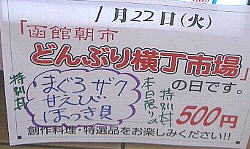 1月22日(火)
「函館朝市
どんぶり横丁市場
の日です。
特別丼
まぐろザク
甘えび
ほっき貝
特別丼
本日限り
500円
創作料理・特選品をお楽しみください!!